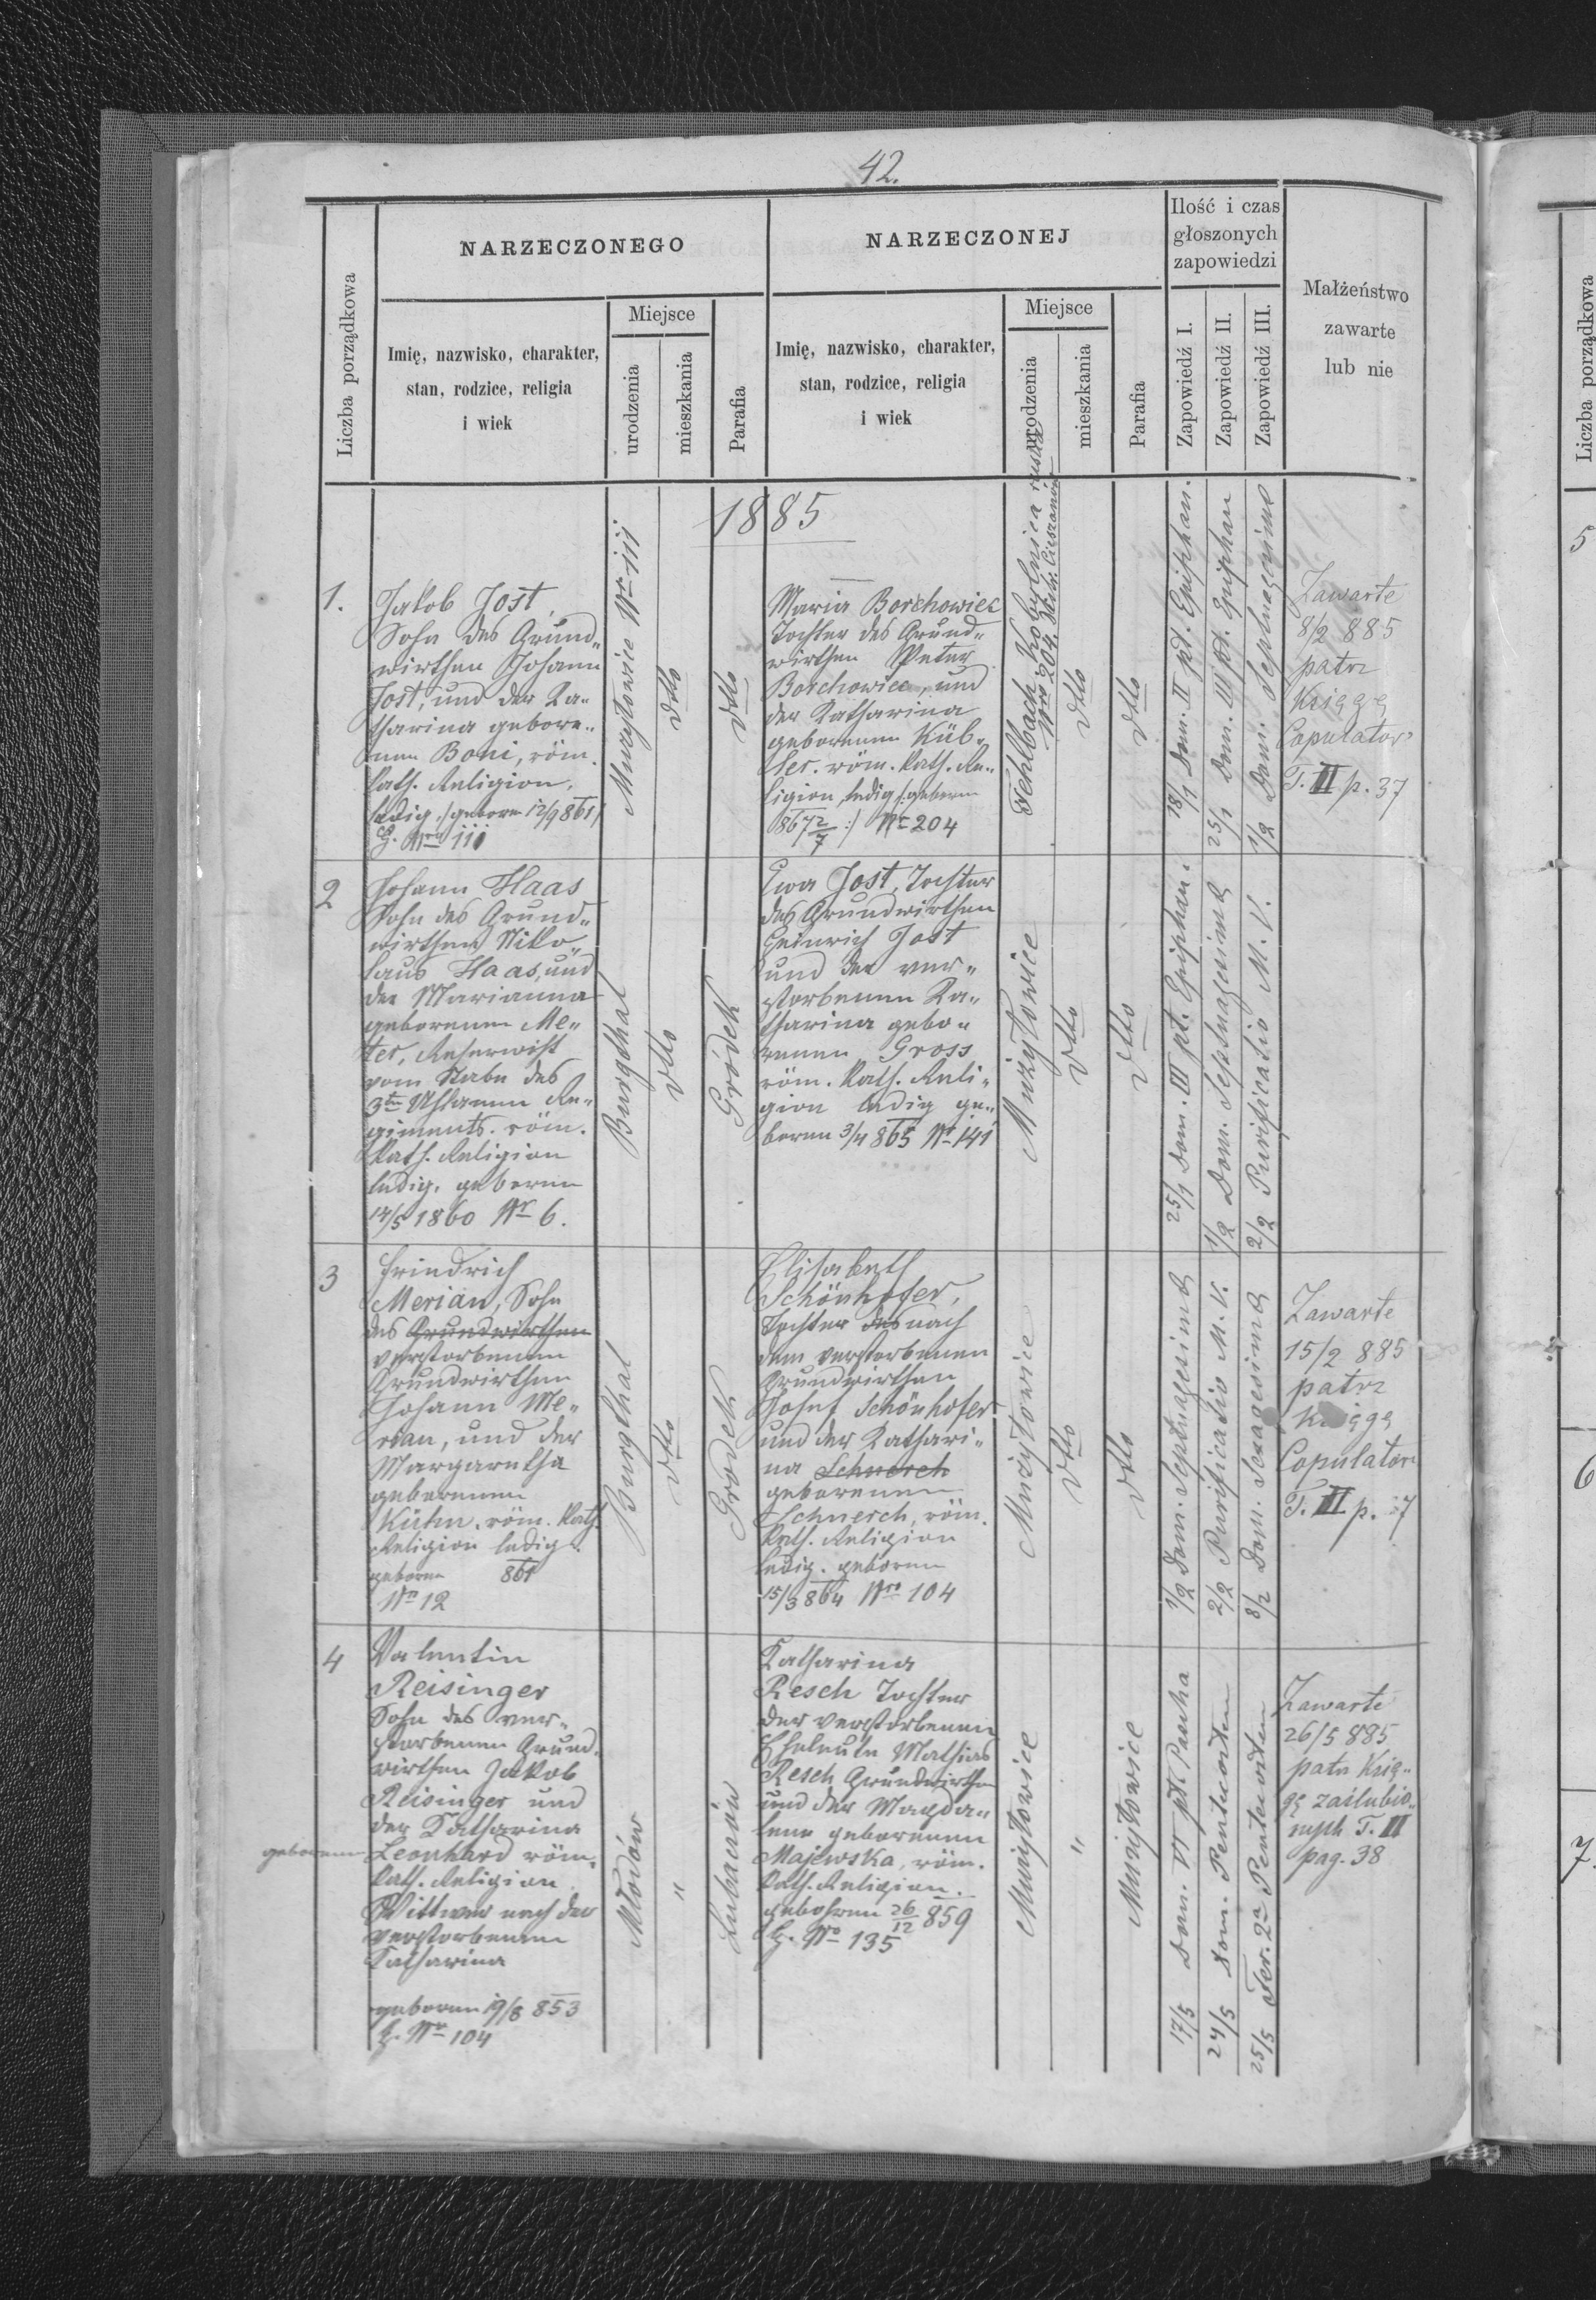 42.
Liczba porządkowa
NARZECZONEGO
Imię, nazwisko, charakter,
stan, rodzice, religia
i wiek
Miejsce
urodzenia
mieszkania
Parafia
NARZECZONEJ
Imię, nazwisko, charakter,
stan, rodzice, religia
i wiek
Miejsce
urodzenia
mieszkania
Parafia
Ilość i czas
głoszonych
zapowiedzi
Zapowiedź I.
Zapowiedź II.
Zapowiedź III.
Małżeństwo
zawarte
lub nie
1885
1.
Jakob Jost,
Sohn des Grund„
wirthen Johann
Jost, und der Ka„
tharina gebore„
nen Boni, röm.
kath. Religion,
ledig. /: geboren 12/9 861 /
H. Nro 111
Muzyłowice Nr 111
dtto
dtto
Maria Borchowiec
Tochter des Grund„
wirthen Peter
Borchowiec, und
der Katharina
geborenen Küb„
ler. röm. kath. Re„
ligion, ledig /: geboren
867 2/7 :/ Nr 204
Fehlbach, Kobylnica ruska
Nro 204.
dtto
dtto
18/1 Dom. II pt. Epiphan.
25/1 Dom. III pt. Epiphan
1/2 Dom. Septuagesima
Zawarte
8/2 885
patrz
Księgę
Copulator
T. III p. 37
2
Johann Haas
Sohn des Grund„
wirthen Niko„
laus Haas, und
der Marianna
geborenen Me„
ter, Reserwist
vom Stabe des
3ten Uhlanen Re„
giments. röm.
kath. Religion
ledig. geboren
14/5 1860 Nr 6.
Burgthal
dtto
Gródek
Ewa Jost, Tochter
des Grundwirthen
Heinrich Jost
und der ver„
storbenen Ka„
tharina gebo„
renen Gross
röm. kath. Reli„
gion ledig ge„
boren 3/4 865 Nr 141
Mużyłowice
dtto
dtto
25/1 Dom. III pt. Epiphan.
1/2 Dom. Septuagesima
2/2 Purificatio M. V.
3
Friedrich
Merian, Sohn
des Grundwirthen
verstorbenen
Grundwirthen
Johann Me„
rian, und der
Margaretha
geborenen
Kühn. röm. kath.
Religion ledig.
geboren 861
Nr 12
Burgthal
dtto
Gródek
Elisabeth
Schönhofer,
Tochter des nach
dem verstorbenen
Grundwirthen
Josef Schönhofer
und der Kathari„
na Schnerch
geborenen
Schnerch, röm.
kath. Religion
ledig. geboren
15/3 864 Nro 104
Muzyłowice
dtto
dtto
1/2 Dom. Septuagesima
2/2 Purificatio M. V.
8/2 Dom. Sexagesima
Zawarte
15/2 885
patrz
Księgę
Copulator
T. III p. 37
4
Valentin
Reisinger
Sohn des ver„
storbenen Grund„
wirthen Jakob
Reisinger und
der Katharina
geborenen Leonhard röm.
kath. Religion
Wittwer nach der
verstorbenen
Katharina
geboren 19/8 853
H. Nr 104
Młodów
„
Lubaczów
Katharina
Resch Tochter
der verstorbenen
Eheleute Mathias
Resch Grundwirthen
und der Magda„
lena geborenen
Majewska, röm.
kath. Religion.
gebohren 26/12 859
H. No 135
Muzyłowice
„
Muzyłowice
17/5 Dom. VI pt Pascha
24/5 Dom. Pentecosten
25/5 Fer. 2a Pentecosten
Zawarte
26/5 885
patrz Księ„
gę zaślubio„
nych T. III
pag. 38
Liczba porządkowa
5
6
7.